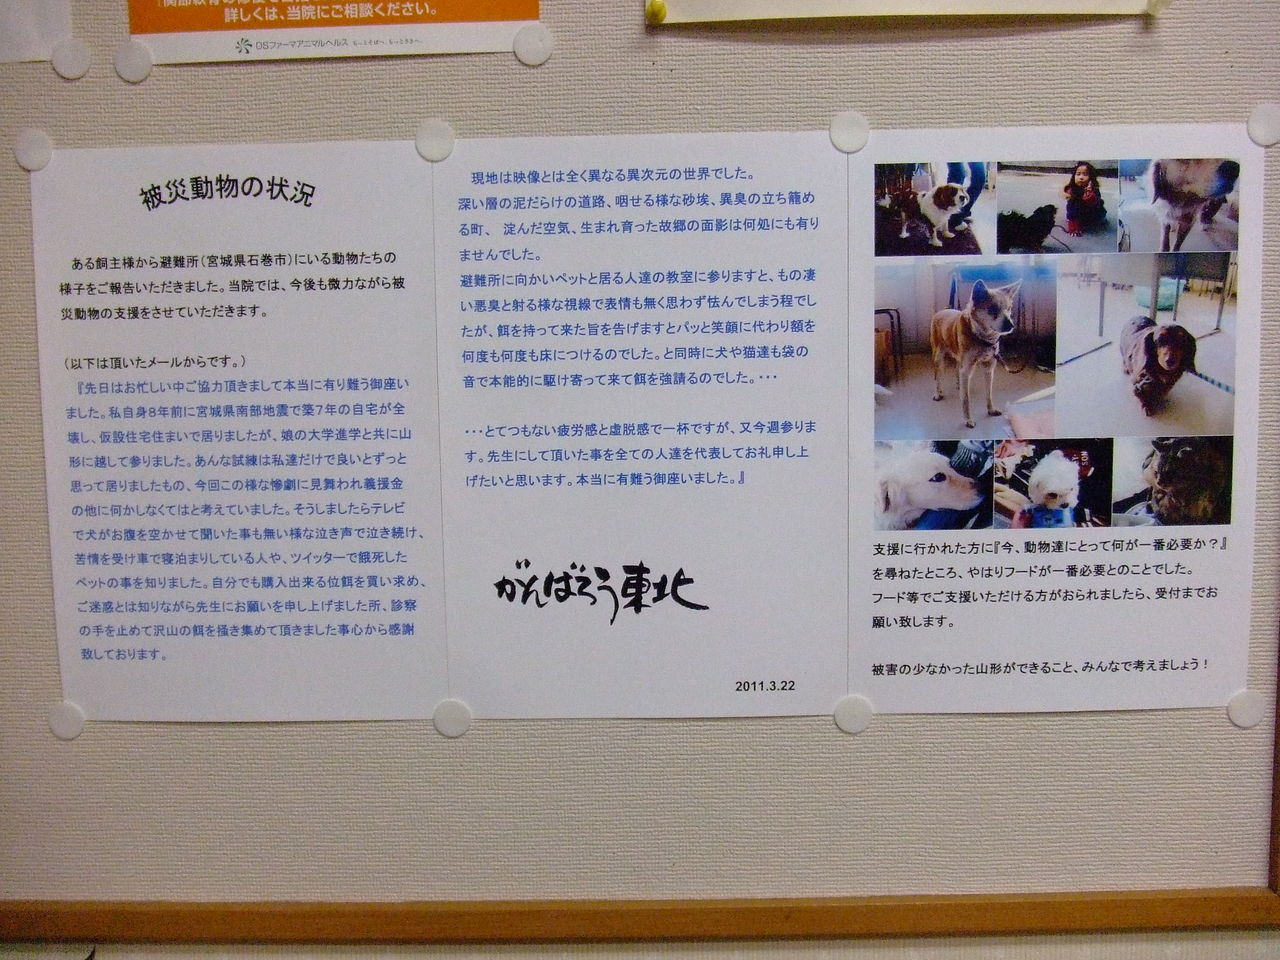 詳しくは、当院にご相談ください。
DSファーマアニマルヘルス
被災動物の状況
ある飼主様から避難所(宮城県石巻市)にいる動物たちの
様子をご報告いただきました。当院では、今後も微力ながら被
災動物の支援をさせていただきます。
(以下は頂いたメールからです。)
『先日はお忙しい中ご協力頂きまして本当に有り難う御座い
ました。私自身8年前に宮城県南部地震で築7年の自宅が全
壊し、仮設住宅住まいで居りましたが、娘の大学進学と共に山
形に越して参りました。あんな試練は私達だけで良いとずっと
思って居りましたもの、今回この様な惨劇に見舞われ義援金
の他に何かしなくてはと考えていました。そうしましたらテレビ
で犬がお腹を空かせて聞いた事も無い様な泣き声で泣き続け、
苦情を受け車で寝泊まりしている人や、ツイッターで餓死した
ペットの事を知りました。自分でも購入出来る位餌を買い求め、
ご迷惑とは知りながら先生にお願いを申し上げました所、診察
の手を止めて沢山の餌を掻き集めて頂きました事心から感謝
致しております。
現地は映像とは全く異なる異次元の世界でした。
深い層の泥だらけの道路、咽せる様な砂埃、異臭の立ち籠め
る町、 淀んだ空気、生まれ育った故郷の面影は何処にも有り
ませんでした。
避難所に向かいペットと居る人達の教室に参りますと、もの凄
い悪臭と射る様な視線で表情も無く思わず怯んでしまう程でし
たが、餌を持って来た旨を告げますとパッと笑顔に代わり額を
何度も何度も床につけるのでした。と同時に犬や猫達も袋の
音で本能的に駆け寄って来て餌を強請るのでした。・・・
・・・とてつもない疲労感と虚脱感で一杯ですが、又今週参りま
す。先生にして頂いた事を全ての人達を代表してお礼申し上
げたいと思います。本当に有難う御座いました。』
がんばろう東北
2011.3.22
支援に行かれた方に『今、動物達にとって何が一番必要か?』
を尋ねたところ、やはりフードが一番必要とのことでした。
フード等でご支援いただける方がおられましたら、受付までお
願い致します。
被害の少なかった山形ができること、みんなで考えましょう!